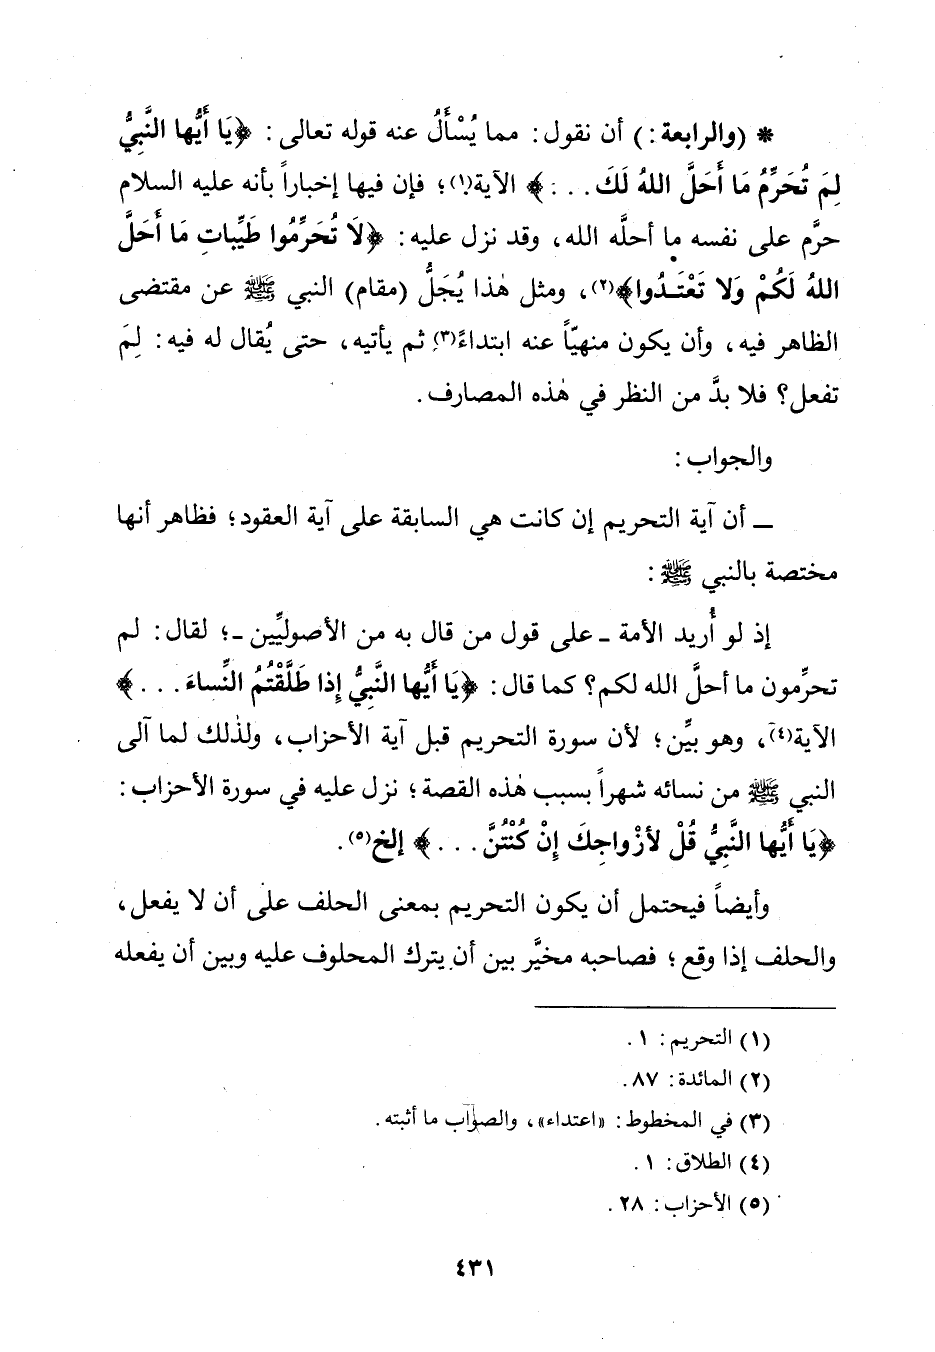 * (والرابعة:) أن نقول: مما يُسْأَلُ عنه قوله تعالى: ﴿يَا أَيُّها النَّبِيُّ
لِمَ تُحَرِّمُ مَا أَحَلَّ اللهُ لَكَ. . .﴾ الآية(١)؛ فإن فيها إخباراً بأنه عليه السلام
حرَّم على نفسه ما أحلَّه الله، وقد نزل عليه: ﴿لَا تُحَرِّمُوا طَيِّباتِ مَا أَحَلَّ
اللهُ لَكُمْ وَلا تَعْتَدُوا﴾(٢)، ومثل هٰذا يُجَلُّ (مقام) النبي ﷺ عن مقتضى
الظاهر فيه، وأن يكون منهيّاً عنه ابتداءً(٣) ثم يأتيه، حتى يُقال له فيه: لِمَ
تفعل؟ فلا بدَّ من النظر في هٰذه المصارف.
والجواب:
ـ أن آية التحريم إن كانت هي السابقة على آية العقود؛ فظاهر أنها
مختصة بالنبي ﷺ:
إذ لو أُريد الأمة ـ على قول من قال به من الأصوليِّين ـ؛ لقال: لم
تحرِّمون ما أحلَّ الله لكم؟ كما قال: ﴿يَا أَيُّها النَّبِيُّ إِذا طَلَّقْتُمُ النِّساءَ. . .﴾
الآية(٤)، وهو بيِّن؛ لأن سورة التحريم قبل آية الأحزاب، ولذٰلك لما آلى
النبي ﷺ من نسائه شهراً بسبب هٰذه القصة؛ نزل عليه في سورة الأحزاب:
﴿يَا أَيُّها النَّبِيُّ قُلْ لأزْواجِكَ إِنْ كُنْتُنَّ. . .﴾ إلخ(٥).
وأيضاً فيحتمل أن يكون التحريم بمعنى الحلف على أن لا يفعل،
والحلف إذا وقع؛ فصاحبه مخيَّر بين أن يترك المحلوف عليه وبين أن يفعله
(١) التحريم: ١.
(٢) المائدة: ٨٧.
(٣) في المخطوط: «اعتداء»، والصواب ما أثبته.
(٤) الطلاق: ١.
(٥) الأحزاب: ٢٨.
٤٣١